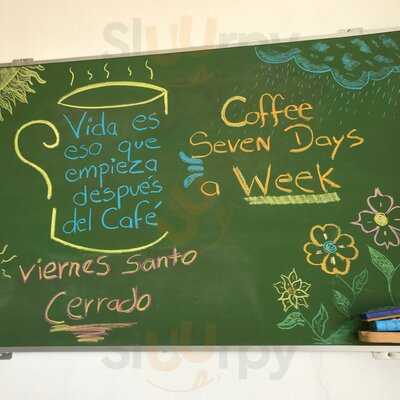 Vida es
eso que
empieza
después
del Café
Coffee
Seven Days
a Week
viernes Santo
Cerrado
Slurpy
Slurpy